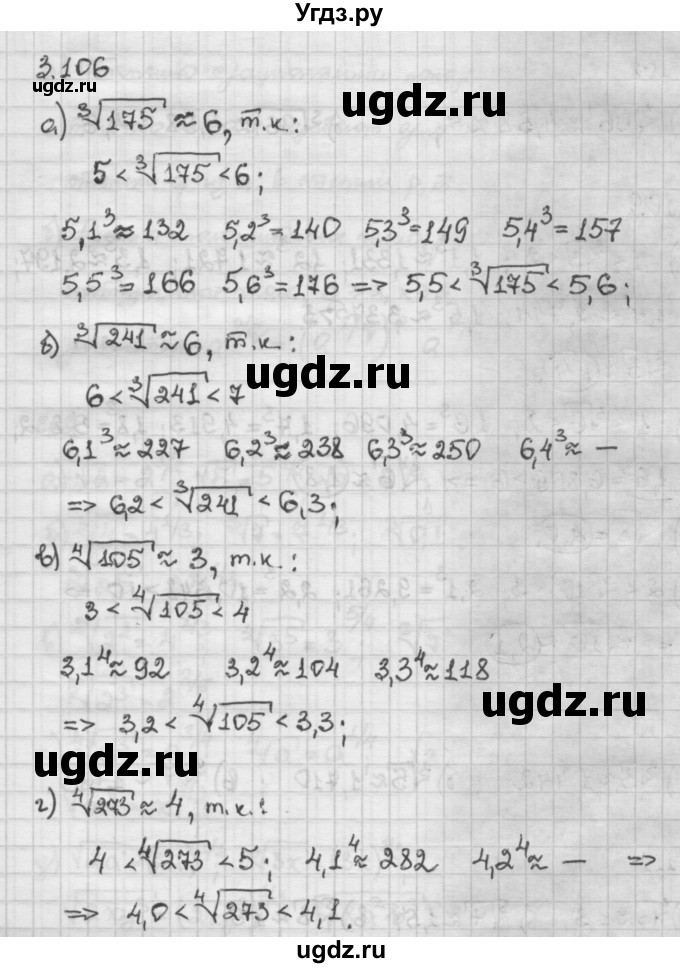 Угдз.ру
3.106
ugdz.ru
ugdz.ru
а) ∛175 ≈ 6, т.к.:
5 < ∛175 < 6;
5,1³ ≈ 132 5,2³ = 140 5,3³ = 149 5,4³ = 157
5,5³ = 166 5,6³ = 176 => 5,5 < ∛175 < 5,6;
б) ∛241 ≈ 6, т.к.:
ugdz.ru
6 < ∛241 < 7
6,1³ ≈ 227 6,2³ ≈ 238 6,3³ ≈ 250 6,4³ ≈ —
=> 6,2 < ∛241 < 6,3;
в) ∜105 ≈ 3, т.к.:
3 < ∜105 < 4
3,1⁴ ≈ 92 3,2⁴ ≈ 104 3,3⁴ ≈ 118
ugdz.ru
=> 3,2 < ∜105 < 3,3;
ugdz.ru
г) ∜273 ≈ 4, т.к.:
4 < ∜273 < 5; 4,1⁴ ≈ 282 4,2⁴ ≈ — =>
=> 4,0 < ∜273 < 4,1.
ugdz.ru